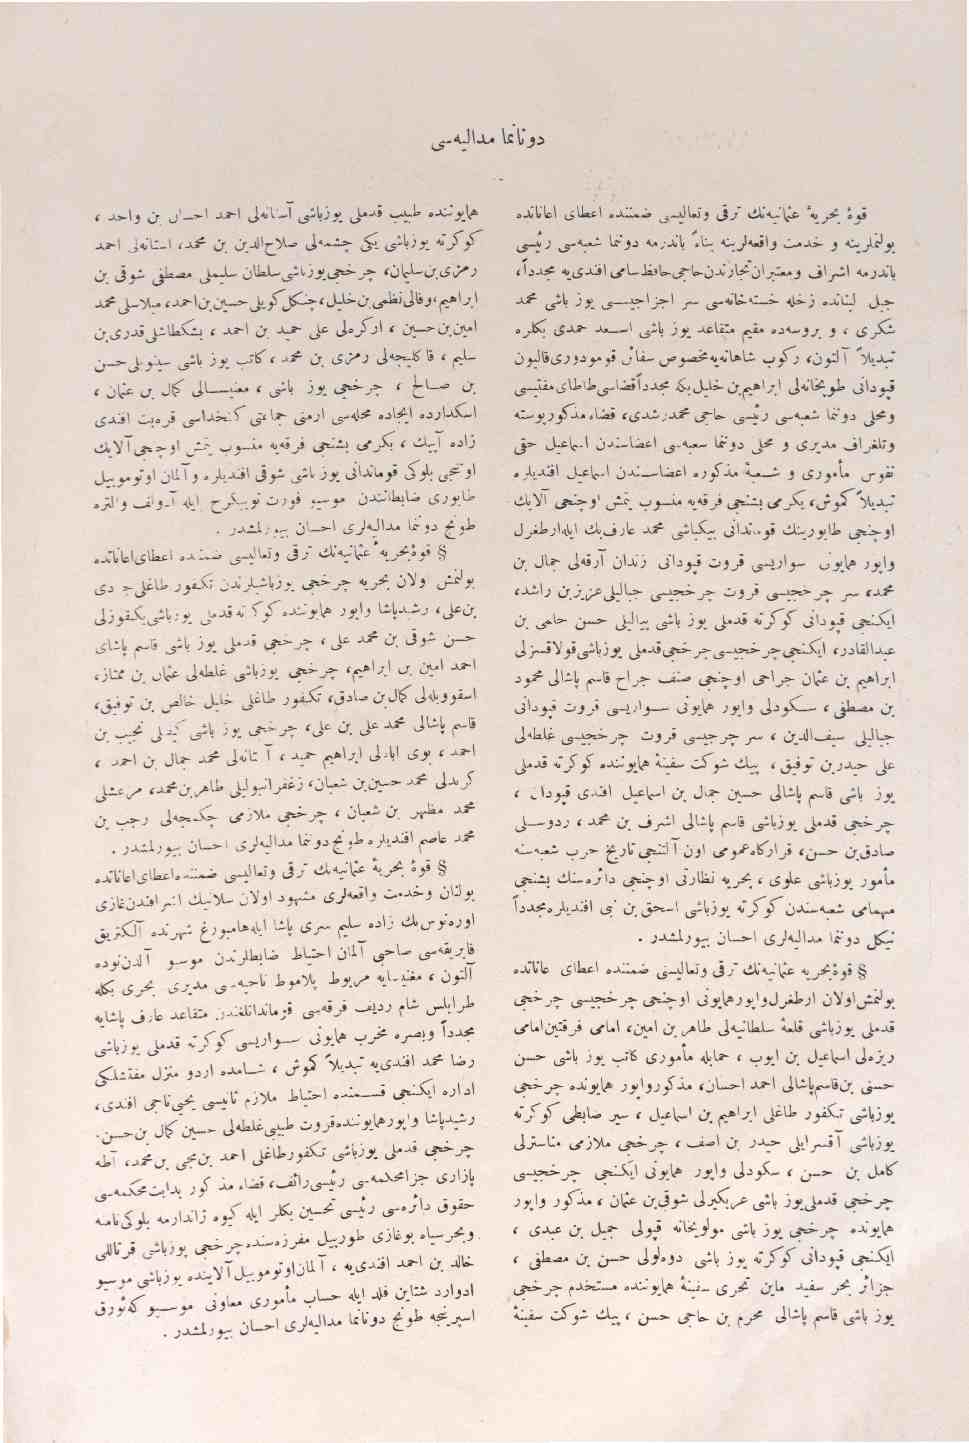 دونانما مدالیه‌سی
قوهٔ بحریهٔ عثمانیه‌نك ترقی وتعالیسی ضمننده اعطای اعاناتده
بولنملرینه و خدمت واقعه‌لرینه بناءً باندرمه دوننما شعبه‌سی رئیسی
باندرمه اشراف ومعتبران تجارندن حاجی حافظ سامی افندی‌یه مجدداً،
جبل لبنانده زحله خسته‌خانه‌سی سر اجزاجیسی یوز باشی محمد
شکری ، و بروسه‌ده مقیم متقاعد یوز باشی اسعد حمدی بکلره
تبدیلاً آلتون، رکوب شاهانه‌یه مخصوص سفائن قومودوری قالیون
قپودانی طوپخانه‌لی ابراهیم بن خلیل بکه مجدداً قضاسی طاطای مفتیسی
ومحلی دوننما شعبه‌سی رئیسی حاجی محمد رشدی، قضاء مذکور پوسته
وتلغراف مدیری و محلی دوننما شعبه‌سی اعضاسندن اسماعیل حقی
نفوس مأموری و شعبهٔ مذکوره اعضاسندن اسماعیل افندیلره
تبدیلاً کموش، یکرمی بشنجی فرقه‌یه منسوب یتمش اوچنجی آلایك
اوچنجی طابورینك قوماندانی بیکباشی محمد عارف بك ایله ارطغرل
واپور همایون سواریسی قروت قپودانی زندان آرقه‌لی جمال بن
محمد، سر چرخجیسی قروت چرخجیسی جبالیلی عزیز بن راشد،
ایکنجی قپودانی کوکرته قدملی یوز باشی بیالیلی حسن حامی بن
عبدالقادر، ایکنجی چرخجیسی چرخجی قدملی یوزباشی قولاقسزلی
ابراهیم بن عثمان جراحی اوچنجی صنف جراح قاسم پاشالی محمود
بن مصطفی ، سکودلی واپور همایونی سواریسی قروت قپودانی
جبالیلی سیف‌الدین ، سر چرجیسی قروت چرخجیسی غلطه‌لی
علی حیدر بن توفیق ، پیك شوکت سفینهٔ همایوننده کوکرته قدملی
یوز باشی قاسم پاشالی حسین جمال بن اسماعیل افندی قپودان ،
چرخجی قدملی یوزباشی قاسم پاشالی اشرف بن محمد ، ردوسلی
صادق بن حسن، قرارکاه عمومی اون آلتنجی تاریخ حرب شعبه‌سنه
مأمور یوزباشی علوی ، بحریه نظارتی اوچنجی دائره‌سنك بشنجی
مهمامی شعبه‌سندن کوکرته یوزباشی اسحق بن نبی افندیلره مجدداً
نیکل دوننما مدالیه‌لری احسان بیورلمشدر .
§ قوهٔ بحریه عثمانیه‌نك ترقی وتعالیسی ضمننده اعطای عاناتده
بولنمش اولان ارطغرل واپور همایونی اوچنجی چرخجیسی چرخجی
قدملی یوزباشی قلعهٔ سلطانیه‌لی طاهر بن امین، امامی فرقتین امامی
ریزه‌لی اسماعیل بن ایوب ، حمابله مأموری کاتب یوز باشی حسن
حسنی بن قاسم پاشالی احمد احسان، مذکور واپور همایونده چرخجی
یوزباشی تکفور طاغلی ابراهیم بن اسماعیل ، سیر ضابطی کوکرته
یوزباشی آقسرایلی حیدر بن اصف ، چرخجی ملازمی مناسترلی
کامل بن حسن ، سکودلی واپور همایونی ایکنجی چرخجیسی
چرخجی قدملی یوز باشی عربکیرلی شوقی بن عثمان ، مذکور واپور
همایونده چرخجی یوز باشی مولویخانه قپولی جمیل بن عبدی ،
ایکنجی قپودانی کوکرته یوز باشی دوه‌لولی حسن بن مصطفی ،
جزائر بحر سفید ماین تحری سفینهٔ همایوننده مستخدم چرخجی
یوز باشی قاسم پاشالی محرم بن حاجی حسن ، پیك شوکت سفینهٔ
همایوننده طبیب قدملی یوزباشی آستانه‌لی احمد احسان بن واحد ،
کوکرته یوزباشی یکی چشمه‌لی صلاح‌الدین بن محمد، استانه‌لی احمد
رمزی بن سلیمان، چرخجی یوزباشی سلطان سلیملی مصطفی شوقی بن
ابراهیم، وفالی نظمی بن خلیل، چنکل کویلی حسین بن احمد، میلاسلی محمد
امین بن حسین ، ارکره‌لی علی حمید بن احمد ، بشکطاشلی قدری بن
سلیم ، قاکلیجه‌لی رمزی بن محمد ، کاتب یوز باشی سینوپلی حسن
بن صالح ، چرخجی یوز باشی ، مغنیسالی کمال بن عثمان ،
اسکدارده ایجاده محله‌سی ارمنی جماعتی کتخداسی قره‌بت افندی
زاده آیبك ، یکرمی بشنجی فرقه‌یه منسوب یتمش اوچنجی آلایك
اوتنجی بلوکی قوماندانی یوز باشی شوقی افندیلره و آلمان اوتوموبیل
طابوری ضابطانندن موسیو فورت نوبیکرح ایله آدولف والتره
طونج دوننما مدالیه‌لری احسان بیورلمشدر .
§ قوهٔ بحریهٔ عثمانیه‌نك ترقی وتعالیسی ضمننده اعطای اعاناتده
بولنمش ولان بحریه چرخجی یوزباشیلرندن تکفور طاغلی دی
بن علی، رشیدپاشا واپور همایوننده کوکرته قدملی یوزباشی بکقوزلی
حسن شوقی بن محمد علی ، چرخجی قدملی یوز باشی قاسم پاشای
احمد امین بن ابراهیم، چرخجی یوزباشی غلطه‌لی عثمان بن ممتاز،
اسقوویلی کمال بن صادق، تکفور طاغلی خلیل خالص بن توفیق،
قاسم پاشالی محمد علی بن علی، چرخجی یوز باشی نجیب بن
احمد ، بوی ابادلی ابراهیم حمید ، آستانه‌لی محمد جمال بن احمد ،
کریدلی محمد حسین بن شعبان، زغفرانبولیلی طاهر بن محمد، مرعشلی
محمد مظهر بن شعبان ، چرخجی ملازمی چکمجه‌لی رجب بن
محمد عاصم افندیلره طونج دوننما مدالیه‌لری احسان بیورلمشدر .
§ قوهٔ بحریهٔ عثمانیه‌نك ترقی وتعالیسی ضمننده اعطای اعاناتده
بولنان وخدمت واقعه‌لری مشهود اولان سلانیك اشرافندن غازی
اوره‌نوس بك زاده سلیم سری پاشا ایله هامبورغ شهرنده آلکتریق
فابریقه‌سی صاحبی آلمان احتیاط ضابطلرندن موسیو آلدن نوده
آلتون ، مغنیسایه مربوط پلاموط ناحیه‌سی مدیری بحری بکله
طرابلس شام ردیف فرقه‌سی قوماندانلغندن متقاعد عارف پاشایه
مجدداً وبصره مخرب همایونی سواریسی کوکرته قدملی یوزباشی
رضا محمد افندی‌یه تبدیلاً کموش ، شامده اردو منزل مفتشلکی
اداره ایکنجی قسمنده احتیاط ملازم ثانیسی یحیی ناجی افندی،
رشیدپاشا واپور همایوننده قروت طبیبی غلطه‌لی حسین کمال بن حسن،
چرخجی قدملی یوزباشی تکفورطاغلی احمد بن محیی بن محمد، آطه
پازاری جزا محکمه‌سی رئیسی رائف، قضاء مذکور بدایت محکمه‌سی
حقوق دائره‌سی رئیسی تحسین بکلر ایله کیوه ژاندارمه بلوکی نامنه
وبحر سیاه بوغازی طورپیل مفرزه‌سنده چرخجی یوزباشی قرتاللی
خالد بن احمد افندی‌یه ، آلمان اوتوموبیل آلاینده یوزباشی موسیو
ادوارد شتاین فلد ایله حساب مأموری معاونی موسیو که‌ئورق
اسپرینجه طونج دونانما مدالیه‌لری احسان بیورلمشدر .